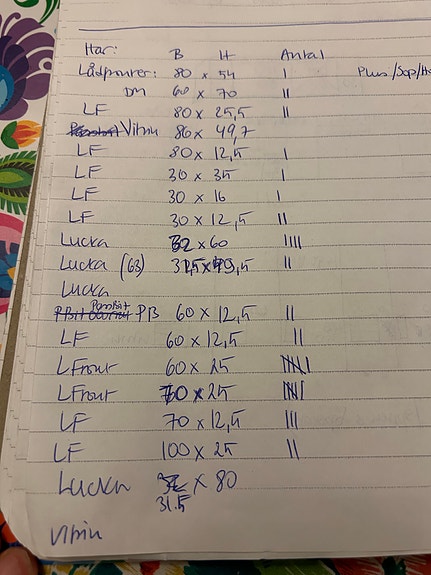 Har: B H Antal
Lådfronter: 80 x 54 I Plus/Sop/Hs
DM 60 x 70 II
LF 80 x 25,5 II
Vitrin 80 x 49,7
LF 80 x 12,5 I
LF 30 x 35 I
LF 30 x 16 I
LF 30 x 12,5 II
Lucka 32 x 60 IIII
Lucka (63) II
Lucka
PB 60 x 12,5 II
LF 60 x 12,5 II
LFront 60 x 25
LFront 70 x 25
LF 70 x 12,5 III
LF 100 x 25 II
Lucka x 80
31.5
Vitrin